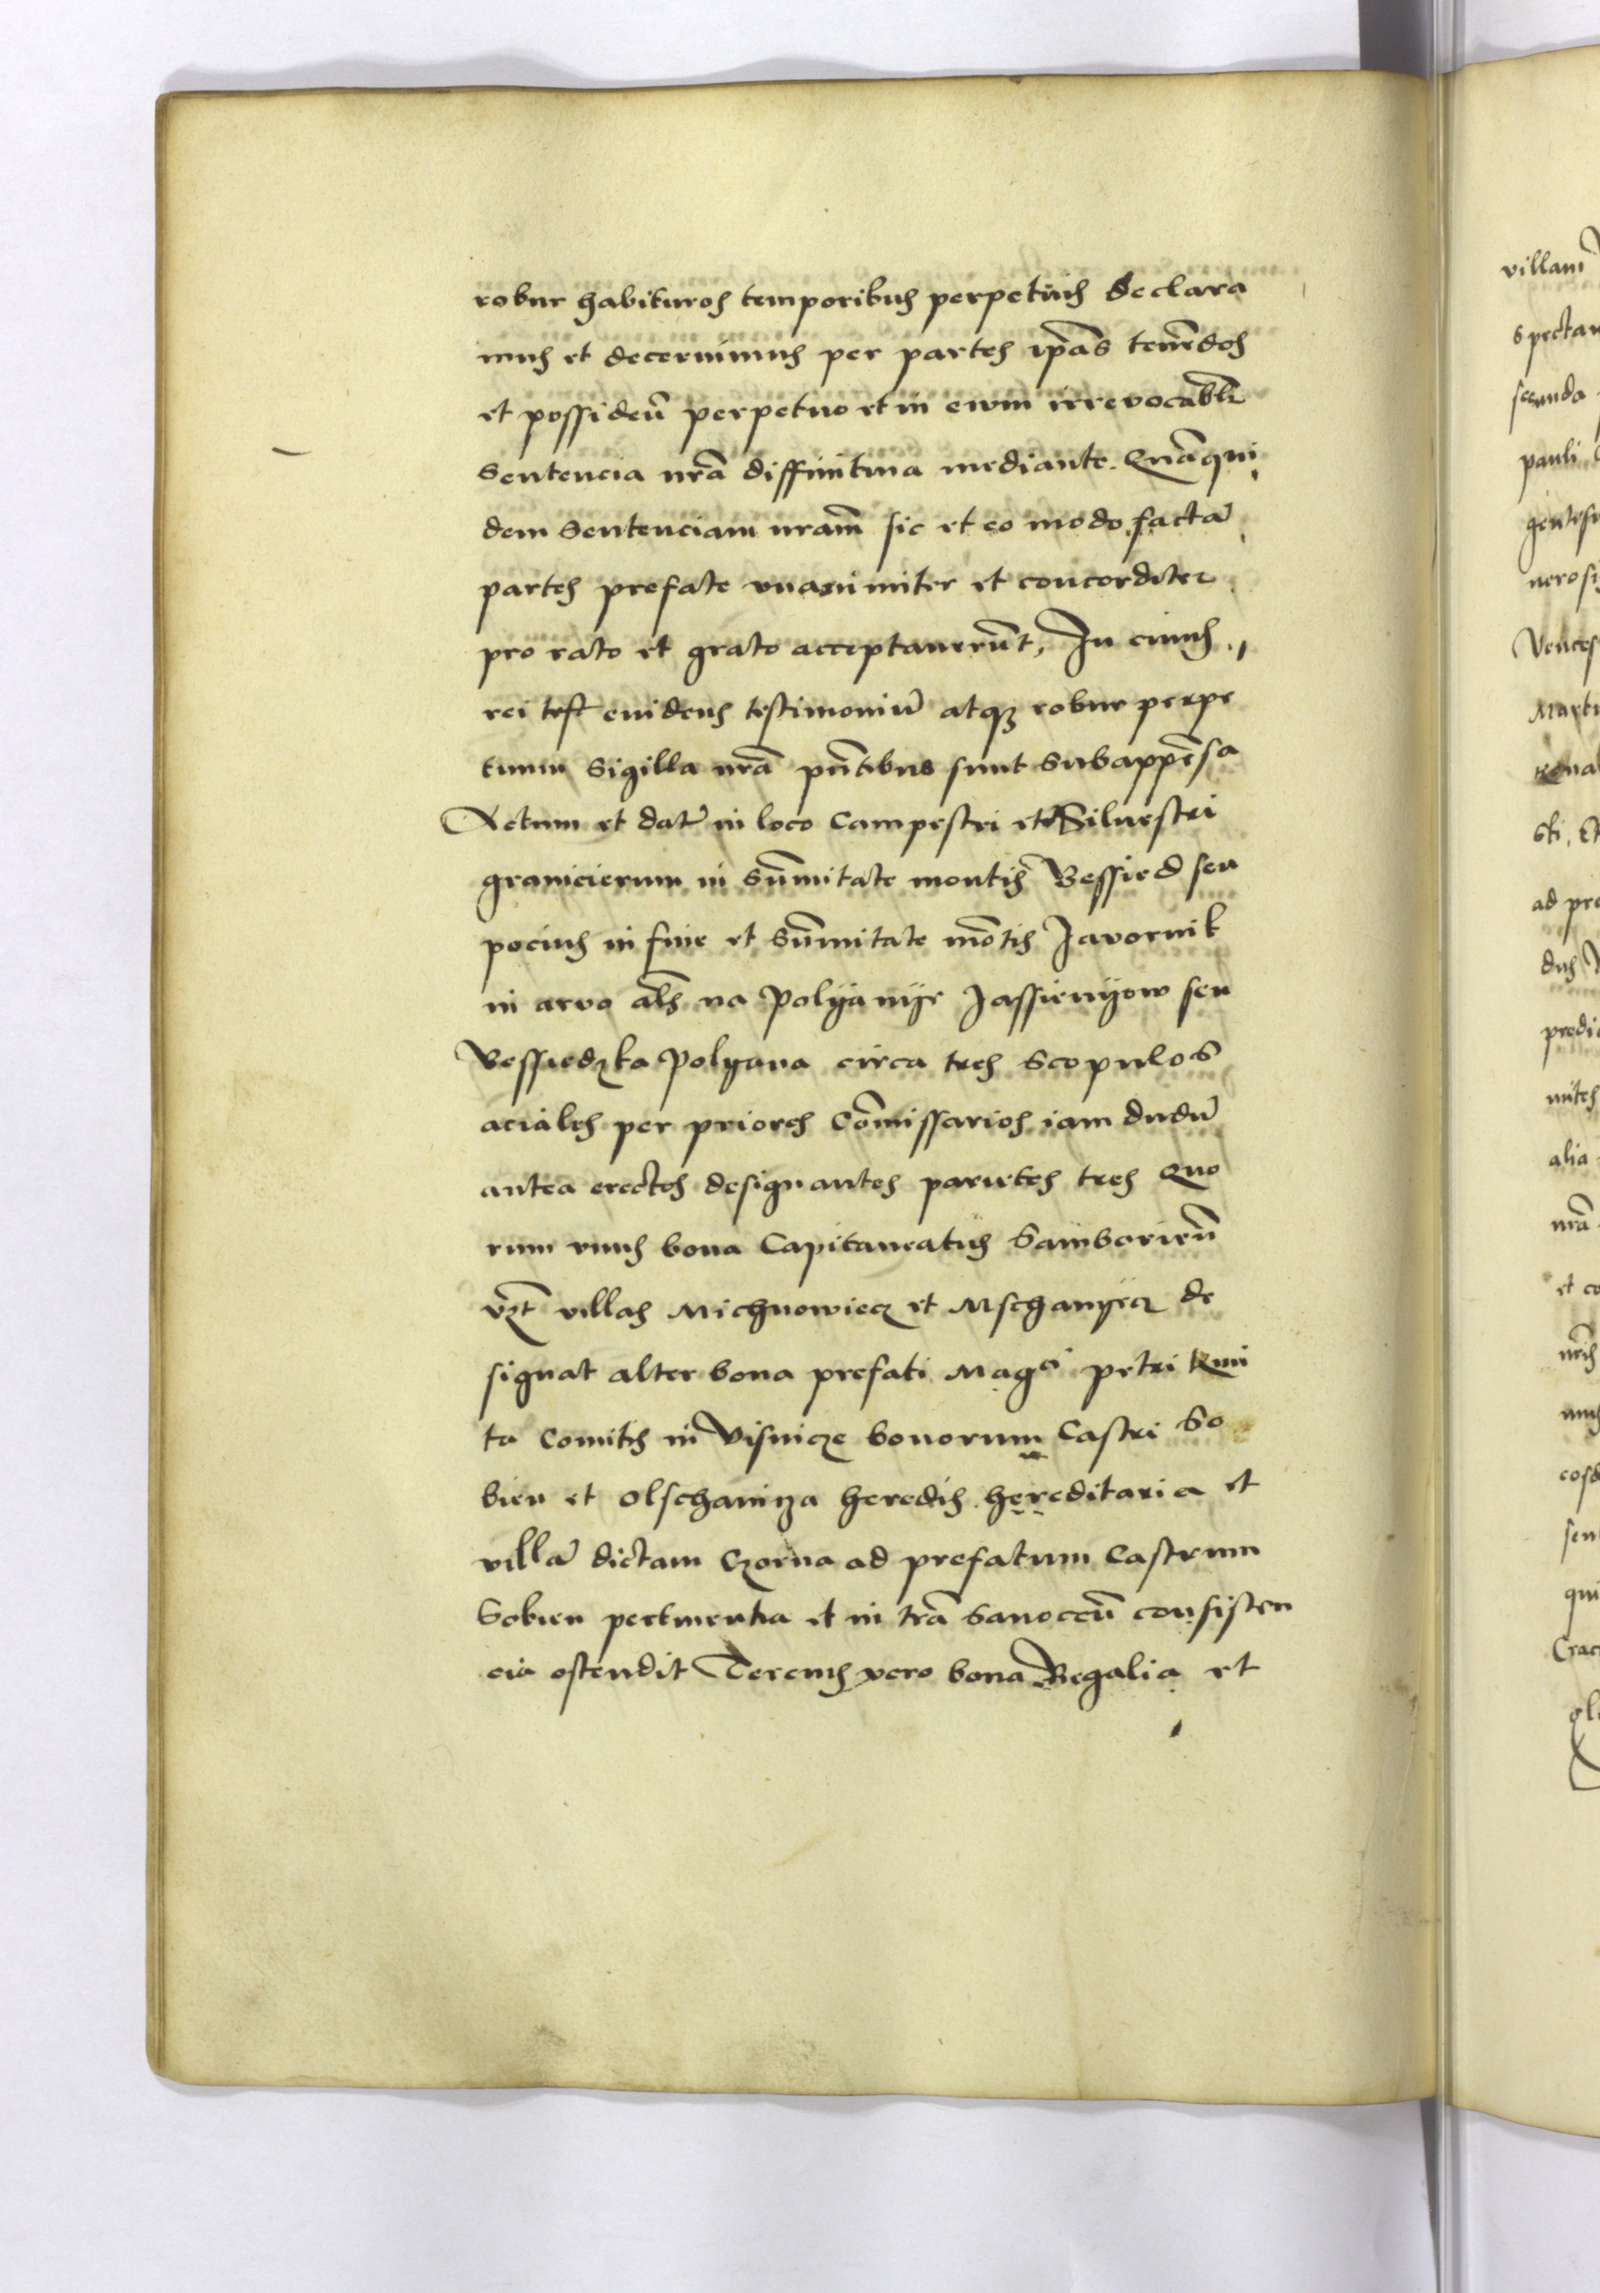 robur habituros temporibus perpetuis declara
mus et decernimus per partes ip̄as tenēdos
et possideñ perpetuo et in ewm irrevocabl̄r
Sentencia nr̄a diffinitiua mediante. Quāqui
dem Sentenciam nr̄am sic et eo modo factā
partes prefate vnanimiter et concorditer
pro rato et grato acceptauerūt, In cuius
rei test euidens testimoniū atqȝ robur perpe
tuum Sigilla nr̄a pn̄tibus sunt Subappēsa
Actum et datū in loco Campestri et Siluestri
granicierum in Sūmitate montis Bessied seu
pocius in fine et Sūmitate mōtis Javornik
in arvo al̄s na Polyanye Jassienyow seu
Bessiedzka Polyana circa tres Scopulos
aciales per priores Cōmissarios iam dudū
antea erectos designantes parietes tres Quo
rum vnus bona Capitaneatus Samborieñ
vzt̄ villas Michnowiecz et Mschanyecz de
signat alter bona prefati Magci petri Kmi
ta Comitis in Visnicze bonorum Castri So
bien et Olschaniza heredis hereditaria et
villā dictam Czorna ad prefatum Castrum
Sobien pertinentia et in tr̄a Sanoceñ consisten
cia ostendit Tercius vero bona Regalia et
villam
spectan
secunda
pauli
nerosi
Vences
ad pre
predic
alia
nr̄a
et co
nr̄is
sen
qui
Crac